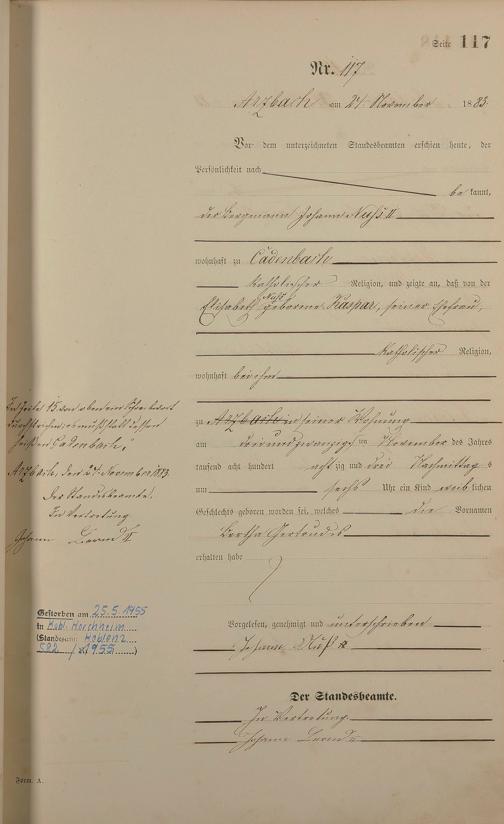 Seite 117
Nr. 117
Arzbach am 24 November 1883
Vor dem unterzeichneten Standesbeamten erschien heute, der
Persönlichkeit nach
be kannt,
der Bergmann Johann Nuß II
wohnhaft zu Cadenbach
katholischer Religion, und zeigte an, daß von der
Nuß
Elisabeth geborene Kaspar, seiner Ehefrau,
katholischer Religion,
wohnhaft bei ihm
zu Arzbach in seiner Wohnung
am dreiundzwanzigsten November des Jahres
tausend acht hundert achtzig und drei Nachmittags
um sechs Uhr ein Kind weiblichen
Geschlechts geboren worden sei, welches die Vornamen
Bertha Gertrudis
erhalten habe
Vorgelesen, genehmigt und unterschrieben
Johann Nuß II
Der Standesbeamte.
In Vertretung
Johann
In Zeile 15 von oben ein Wort
durchstrichen, es muß statt dessen
heißen Cadenbach,
Arzbach, den 24 November 1883
Der Standesbeamte.
In Vertretung
Johann
Gestorben am 25.5.1955
in Kobl. Horchheim
(Standesamt Koblenz
582 / 1955)
Form. A.